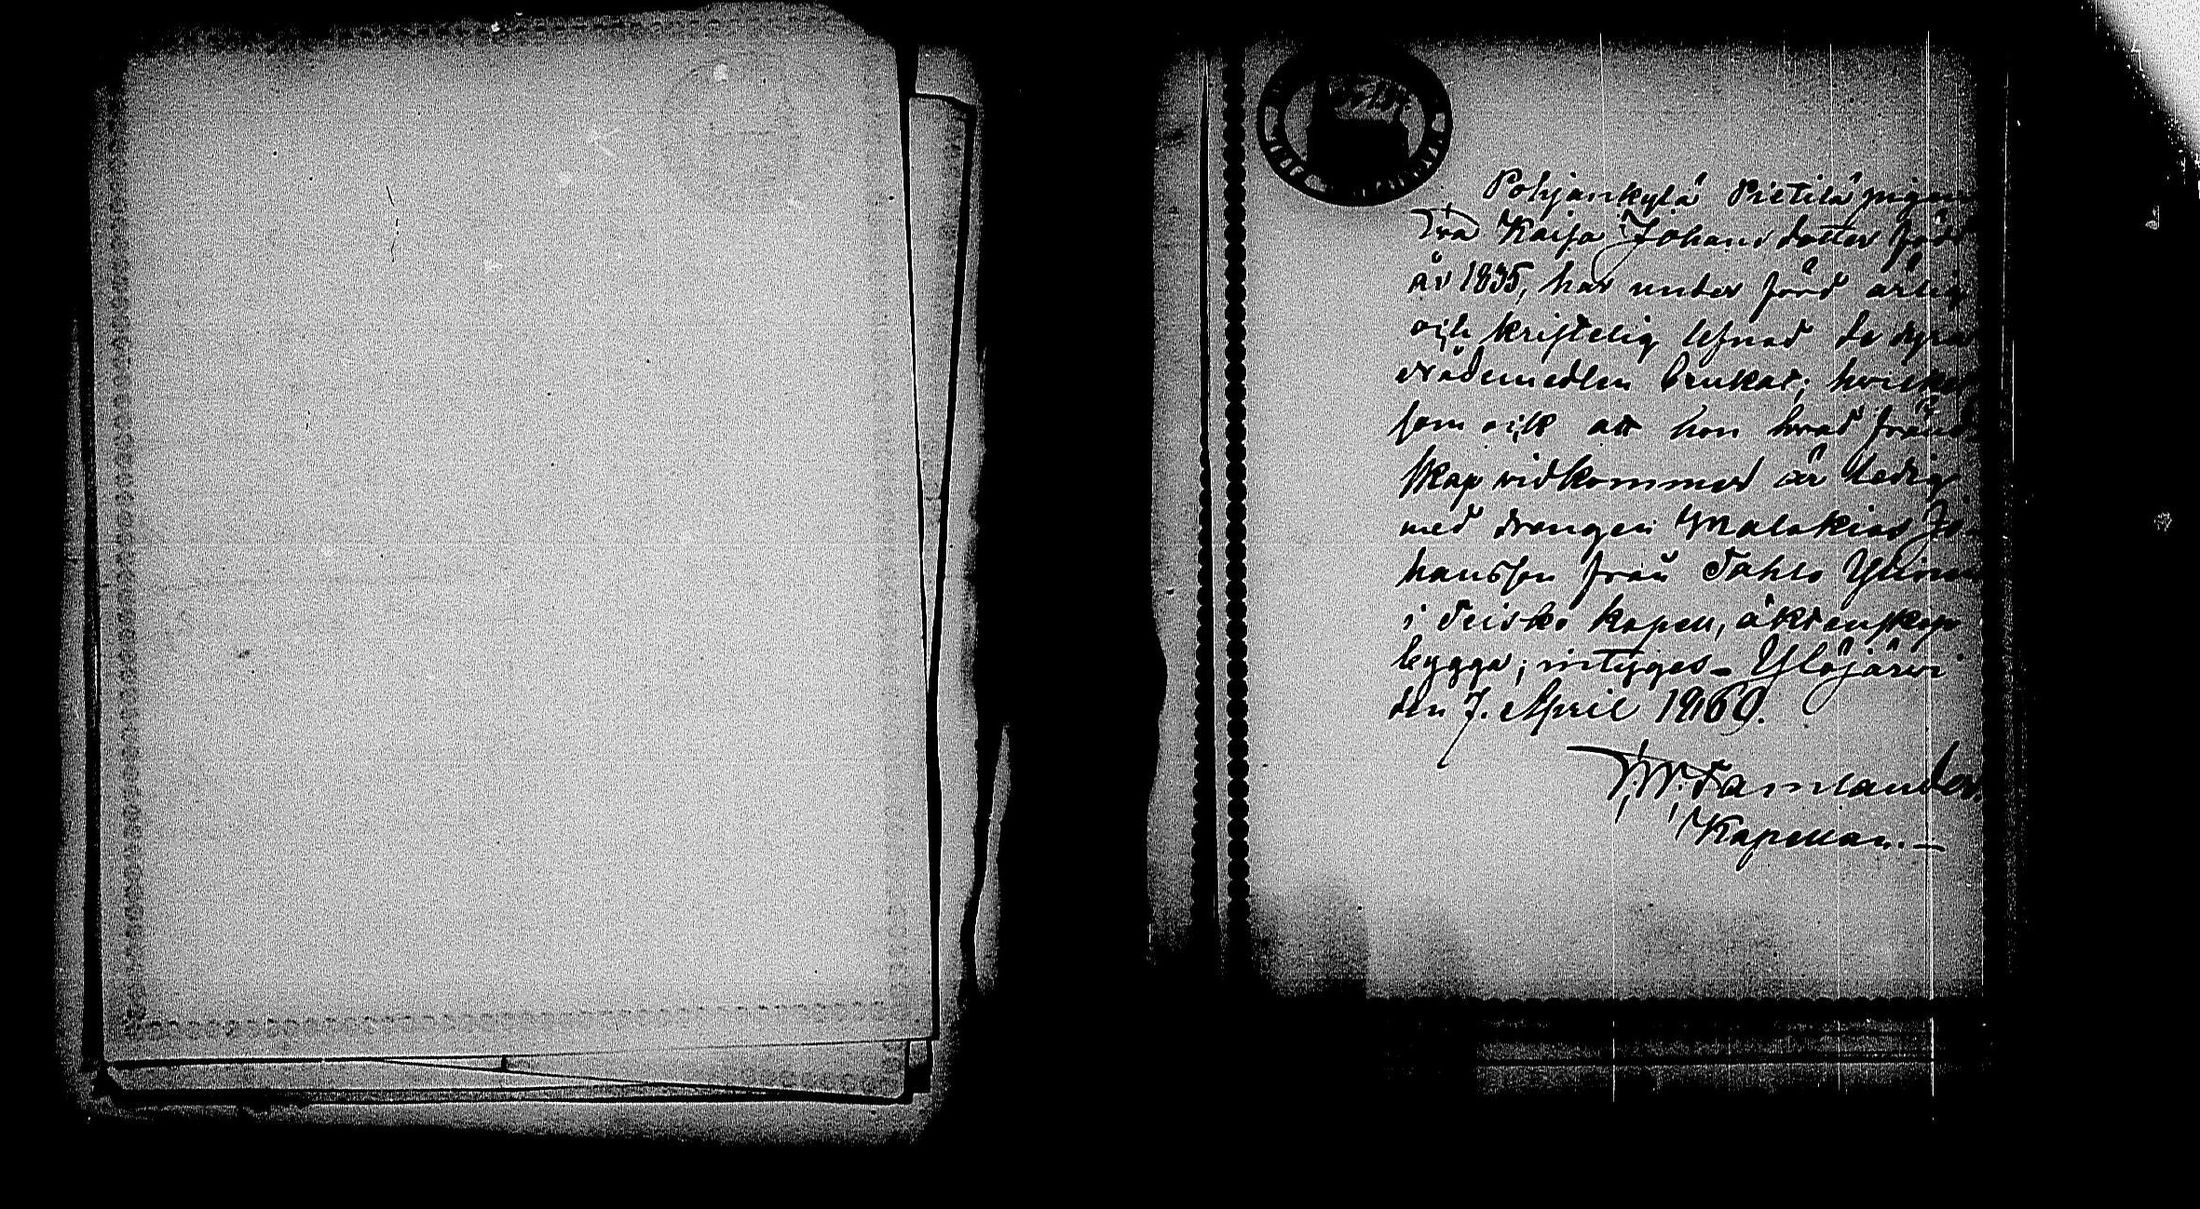 Pohjankylä Pietilä pigan
Eva Kaisa Johansdotter född
år 1835, har under förd ärlig
och kristelig lefnad de dyra
nådemedlen brukat; hvilket
som ock att hon hvad fränd-
skap vidkommer är ledig
med drengen Malakias Jo-
hansson från Tahlo
i Teisko kapell, äktenskap
bygga; intygas. Ylöjärvi
den 7. April 1860.
Tamlander.
Kapellan.—